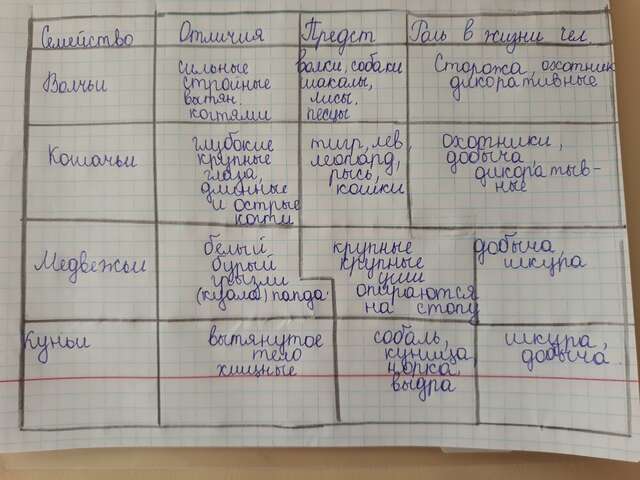 Семейство Отличия Предст Роль в жизни чел.
Волчьи
сильные
стройные
вытян.
когтями
волки, собаки
шакалы,
лисы.
песцы
Сторожа, охотник
дикоративные
Кошачьи
глубокие
крупные
глаза,
длинные
и острые
когти
тигр, лев,
леопард,
рысь,
кошки
охотники,
добыча,
дикоратыв-
ные
Медвежьи
белый
бурый
грызли
(куала) панда.
крупные
крупные
уши
опираются
на стопу
добыча,
шкура
Куньи
вытянутое
тело
хищные
собаль,
куница
норка,
выдра
шкура,
добыча